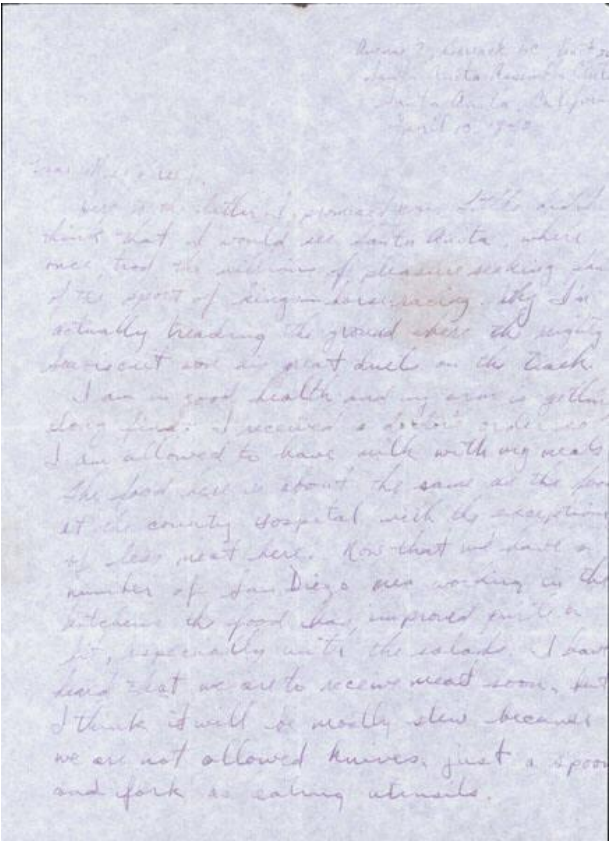 Santa Anita, Californ
April 10, 1942
Dear Miss
Here is the letter I promised you. I
think that I would see Santa Anita where
once trod the millions of pleasure seeking
of the sport of kings horse racing. Why I'm
actually treading the ground where the mighty
Seabiscuit won his great duels on the track.
I am in good health and my arm is gettin
along fine. I received a doctor's order so
I am allowed to have milk with my meals
The food here is about the same as the foo
at the county hospital with the exception
of less meat here. Now that we have a
number of San Diego men working in the
kitchens the food has improved quite a
bit, especially with the salads. I have
heard that we are to receive meat soon, but
I think it will be mostly stew because
we are not allowed knives, just a spoon
and fork as eating utensils.